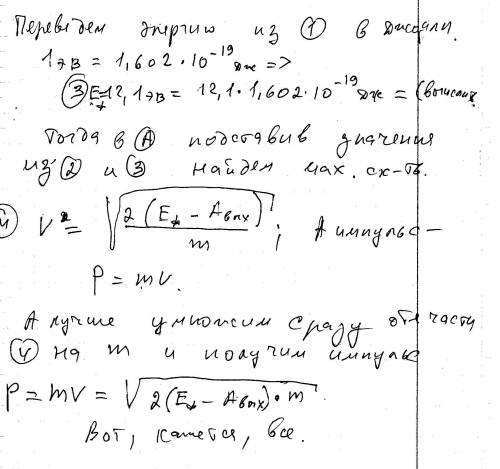 Переведем энергию из ① в джоули.
1эв = 1,602·10⁻¹⁹ дж =>
③ Eф=12,1эв = 12,1·1,602·10⁻¹⁹дж = (вычислишь
Тогда в Ⓐ подставив значения
из ② и ③ найдем мах. ск-ть.
④ V² = √(2(Eф - Aвых)/m) ; А импульс –
P = mV.
А лучше умножим сразу обе части
④ на m и получим импульс
P = mV = √(2(Eф - Aвых)·m)
Вот, кажется, все.